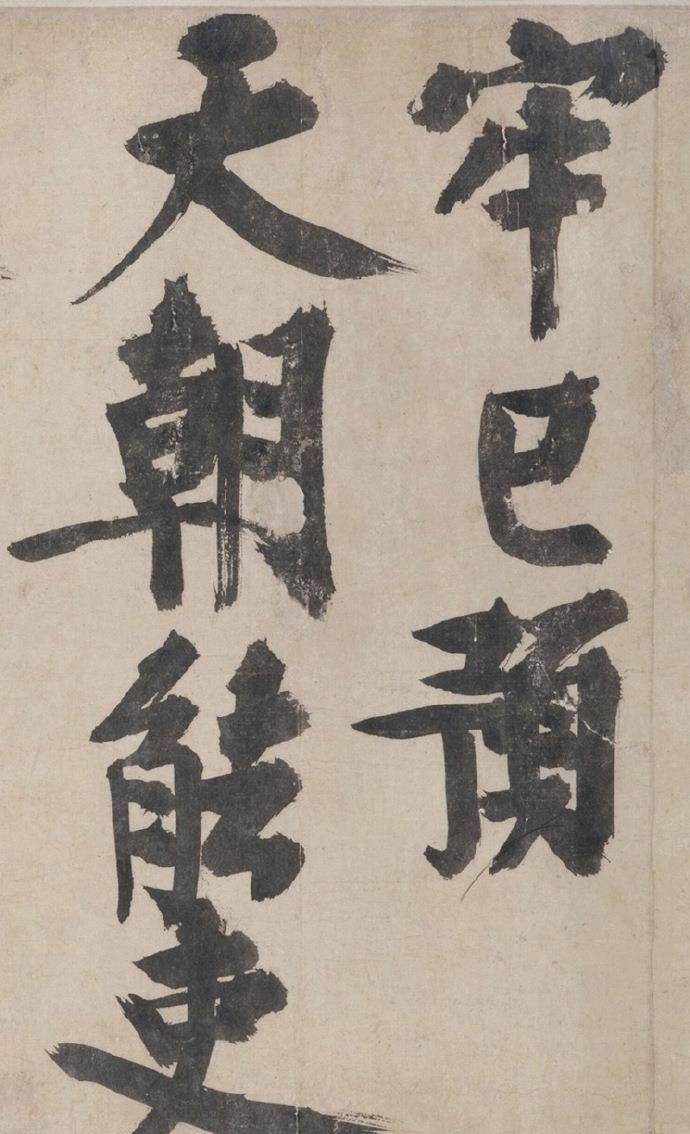 牢已預
天朝能吏